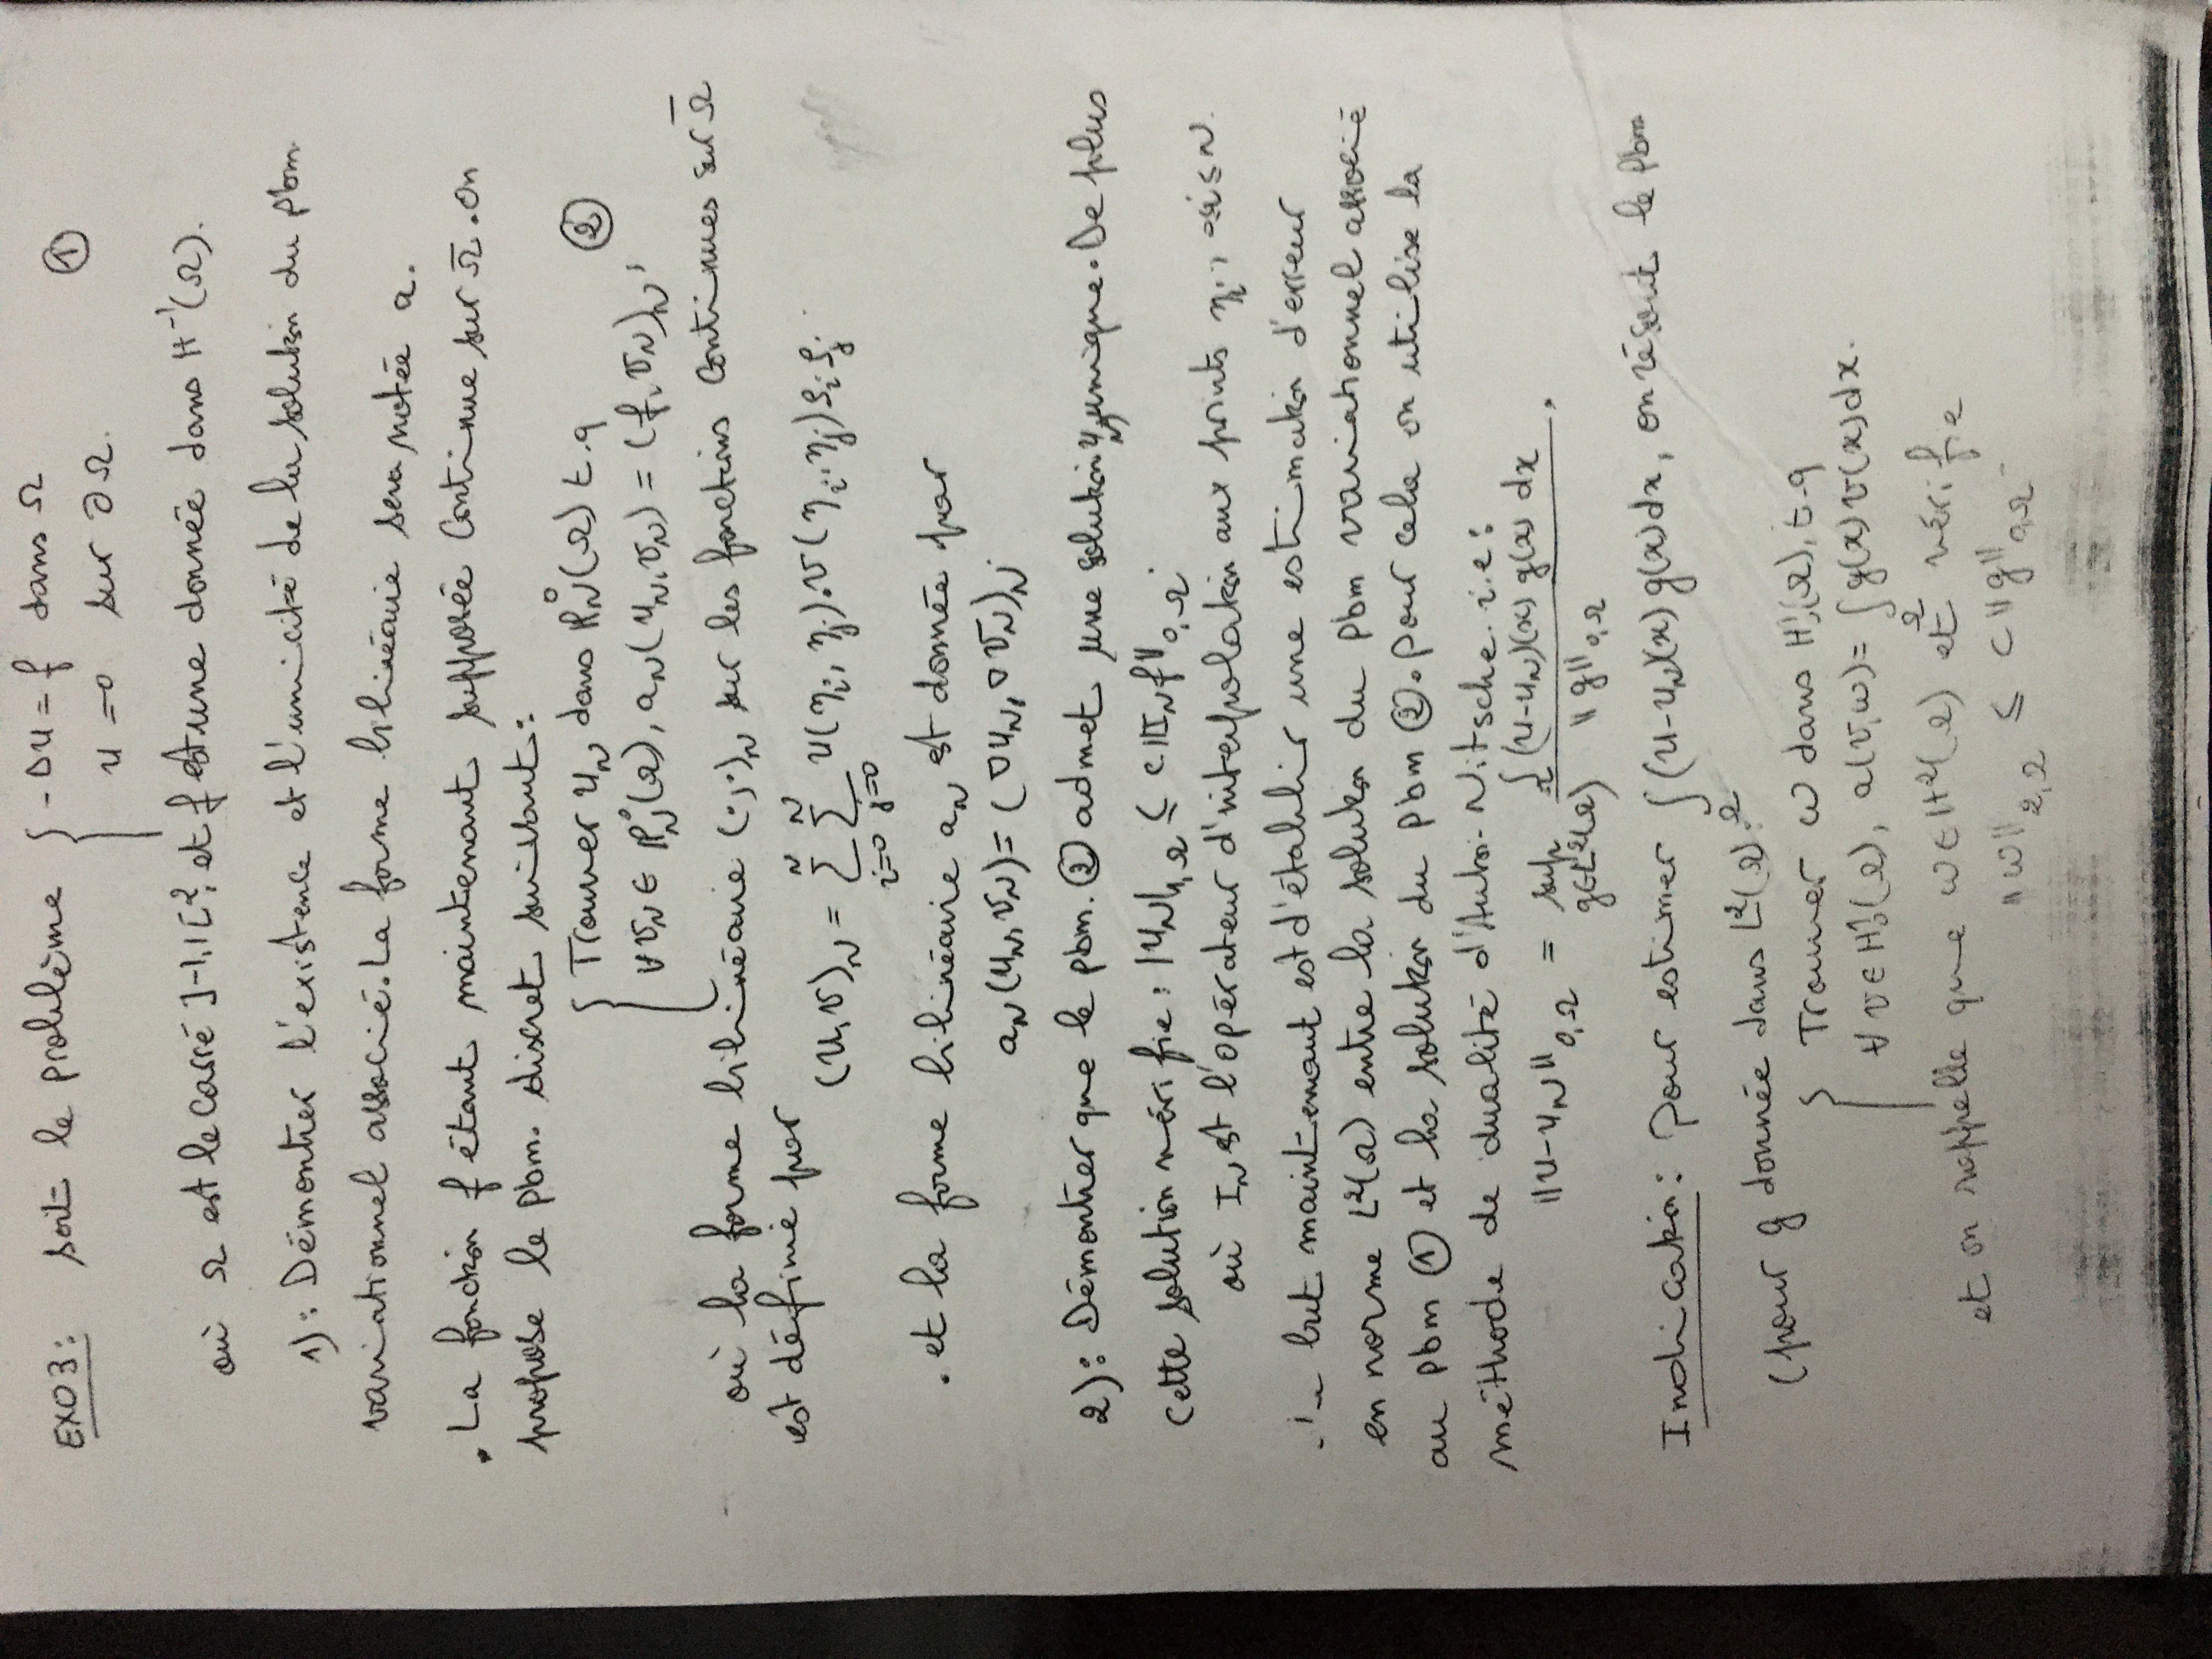 EXO3: soit le problème { -Δu = f dans Ω
u = 0 sur ∂Ω. ①
où Ω est le carré ]-1,1[², et f est une donnée dans H⁻¹(Ω).
1): Démontrer l'existence et l'unicité de la solution du pbm.
variationnel associé. La forme bilinéaire sera notée a.
. La fonction f étant maintenant supposée continue sur Ω̅. on
propose le pbm. discret suivant:
{ Trouver u_N dans P°_N(Ω) t.q
∀ v_N ∈ P°_N(Ω), a_N(u_N, v_N) = (f, v_N)_N, ②
où la forme bilinéaire (.,.)_N sur les fonctions continues sur Ω̅
est définie par
(u,v)_N = Σ_{i=0}^{N} Σ_{j=0}^{N} u(η_i, η_j).v(η_i, η_j) ρ_i ρ_j.
. et la forme bilinéaire a_N est donnée par
a_N(u_N, v_N) = (∇u_N, ∇v_N)_N.
2): Démontrer que le pbm. ② admet une solution u_N unique. De plus
cette solution vérifie: |u_N|_{1,Ω} ≤ c ||I_N f||_{0,Ω}.
où I_N est l'opérateur d'interpolation aux points η_i, 0≤i≤N.
. Le but maintenant est d'établir une estimation d'erreur
en norme L²(Ω) entre la solution du pbm variationnel associé
au pbm ① et la solution du pbm ②. Pour cela on utilise la
méthode de dualité d'Aubin-Nitsche. i.e:
||u-u_N||_{0,Ω} = sup_{g∈L²(Ω)} ∫_Ω (u-u_N)(x) g(x) dx / ||g||_{0,Ω},
Indication: Pour estimer ∫_Ω (u-u_N)(x) g(x) dx, on résout le pbm
(pour g donnée dans L²(Ω).
{ Trouver w dans H¹₀(Ω), t.q
∀ v ∈ H¹₀(Ω), a(v,w) = ∫_Ω g(x) v(x) dx.
et on rappelle que w ∈ H²(Ω) et vérifie
||w||_{2,Ω} ≤ c ||g||_{0,Ω}.